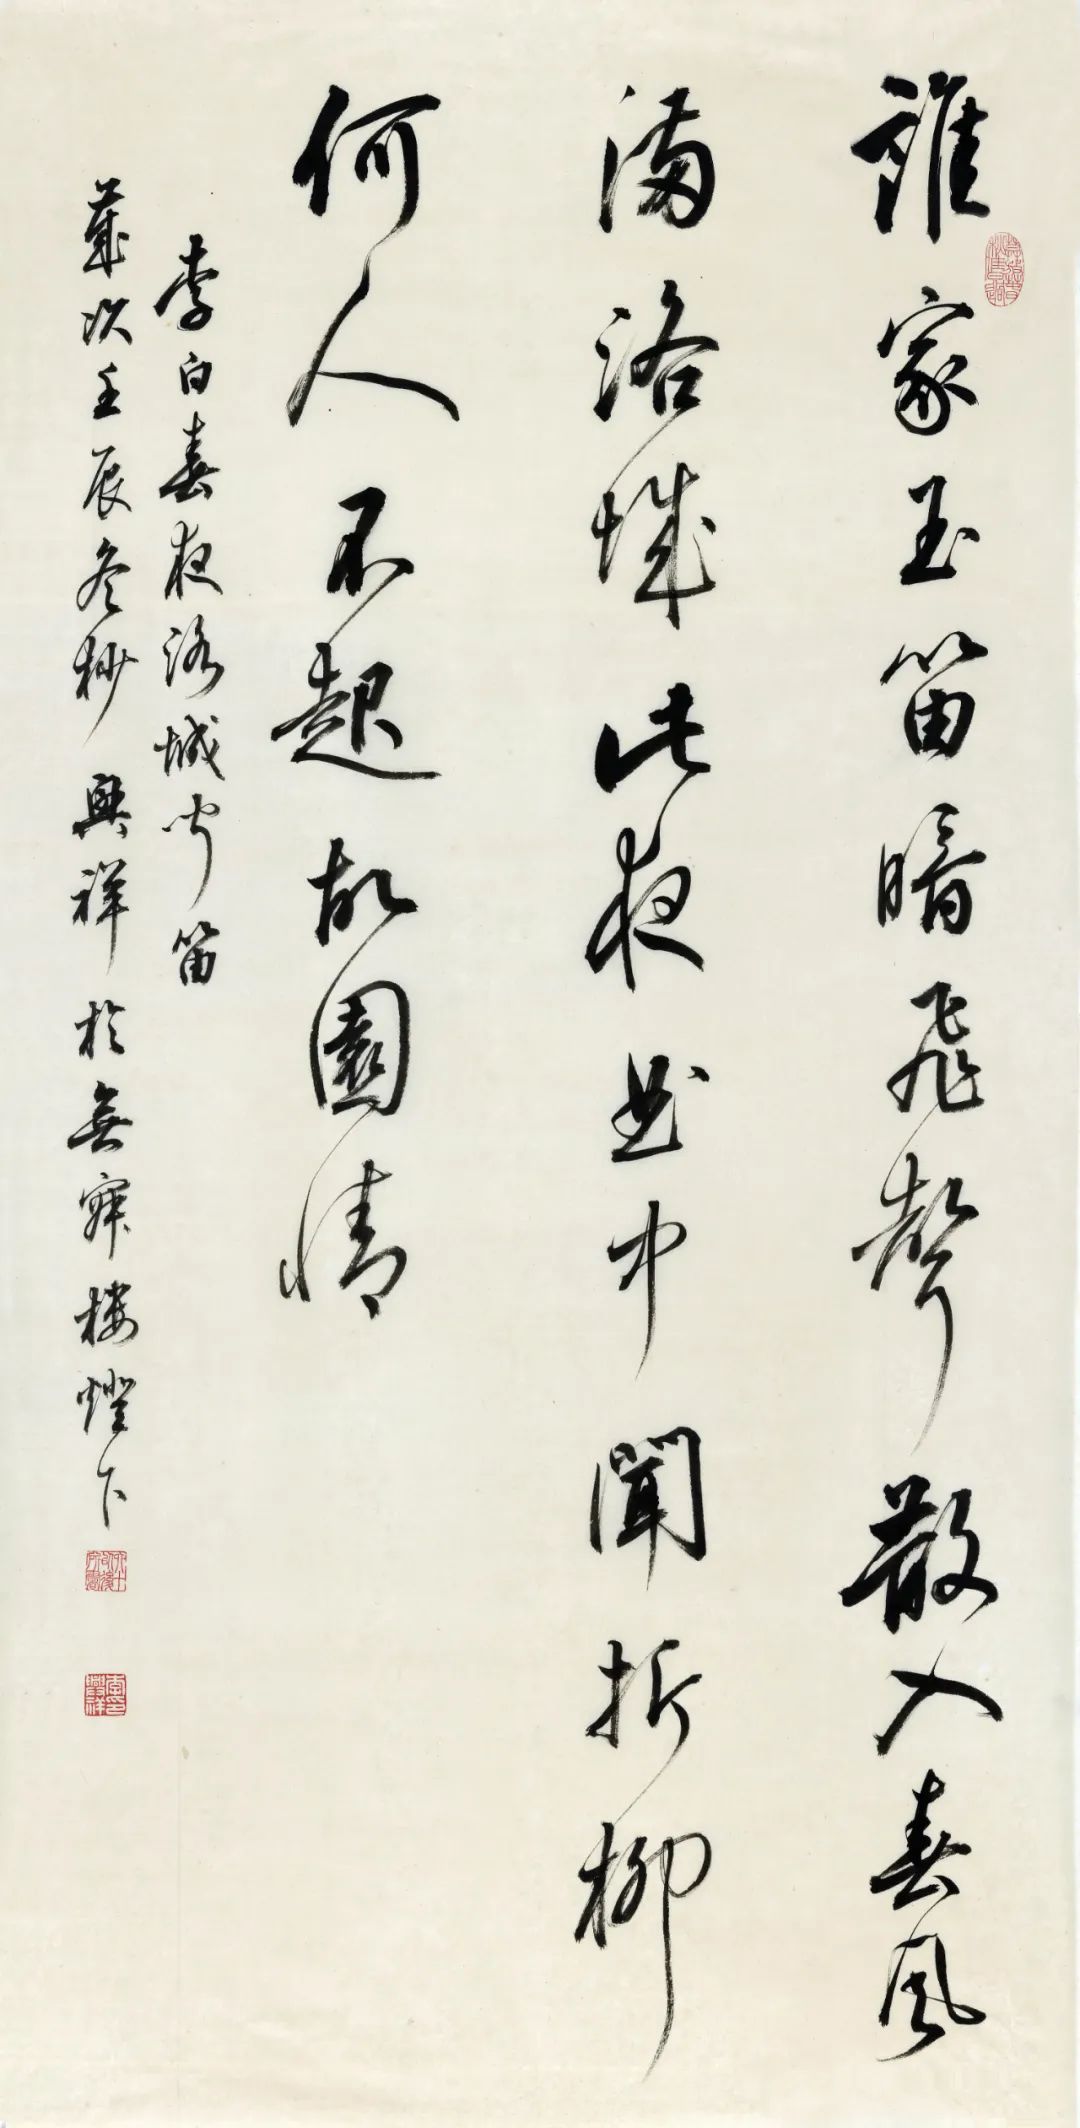 誰家玉笛暗飛聲散入春風
滿洛城此夜曲中聞折柳
何人不起故園情
李白春夜洛城聞笛
歲次壬辰冬杪興祥於無寐樓燈下